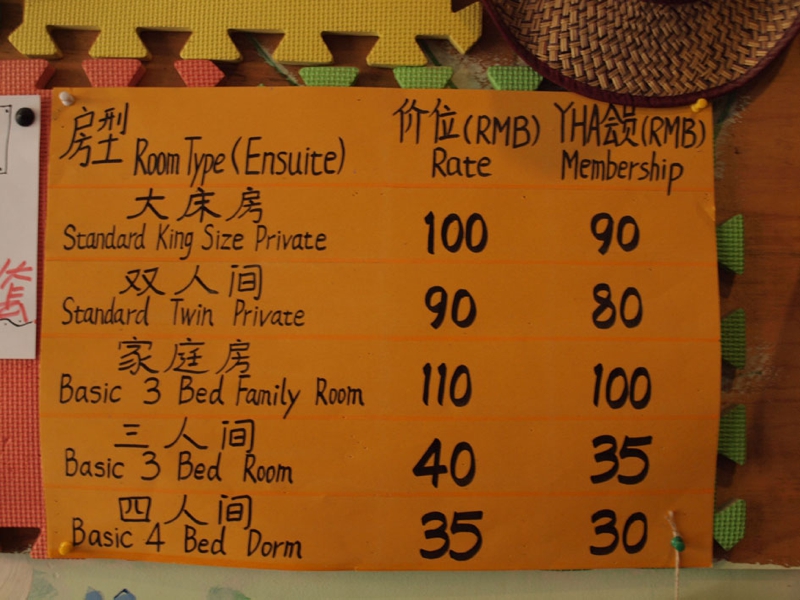 房型 Room Type (Ensuite) 价位(RMB) Rate YHA会员(RMB) Membership
大床房
Standard King Size Private 100 90
双人间
Standard Twin Private 90 80
家庭房
Basic 3 Bed Family Room 110 100
三人间
Basic 3 Bed Room 40 35
四人间
Basic 4 Bed Dorm 35 30